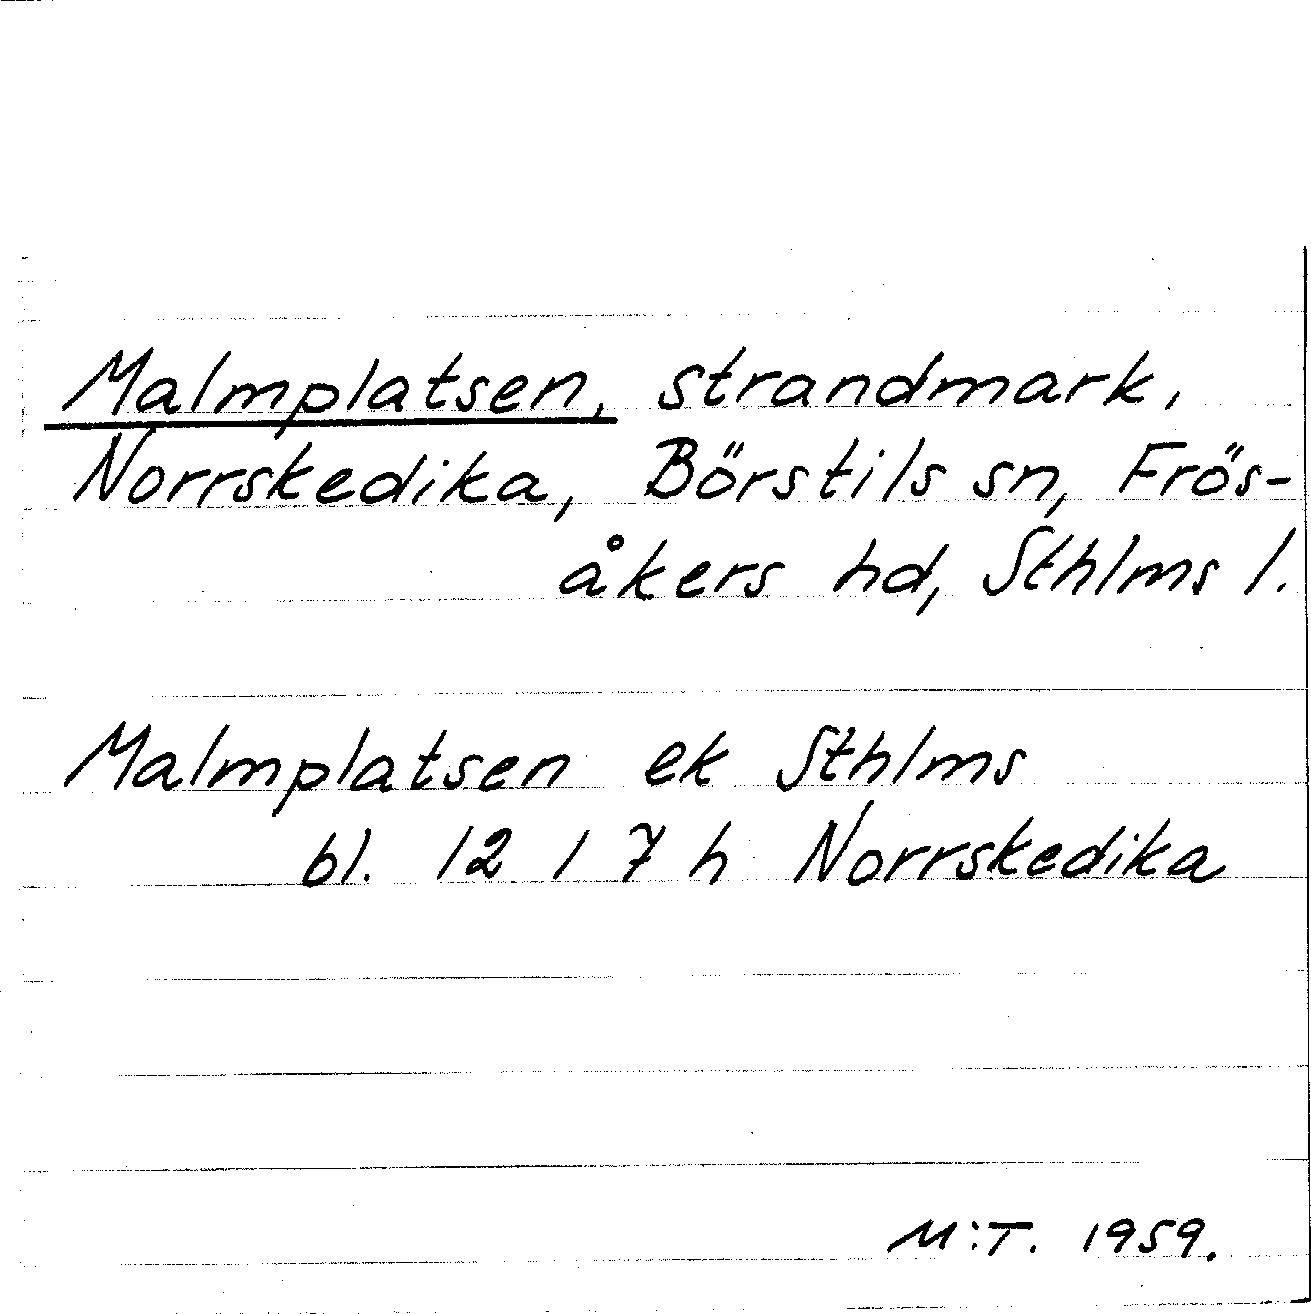 Malmplatsen, strandmark,
Norrskedika, Börstils sn, Frös-
åkers hd, Sthlms l.
Malmplatsen ek Sthlms
bl. 12 l 7 h Norrskedika
M:T. 1959.